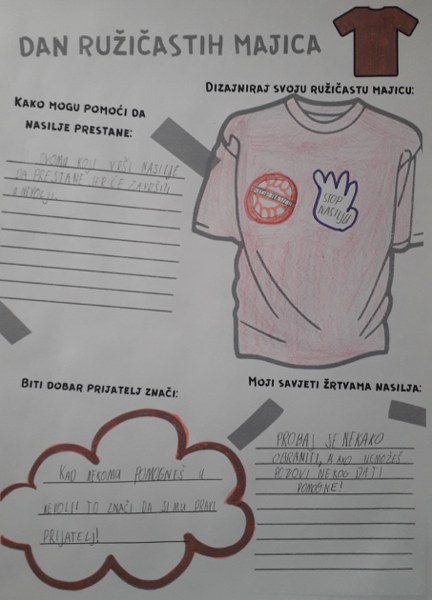 DAN RUŽIČASTIH MAJICA
DIZAJNIRAJ SVOJU RUŽIČASTU MAJICU:
KAKO MOGU POMOĆI DA
NASILJE PRESTANE:
KOJI VRŠI NASILJE
DA PRESTANE ĆE ZAVRŠITI
U NEVOLJI.
STOP
NASILJU
BITI DOBAR PRIJATELJ ZNAČI:
KAD NEKOMU POMOGNEŠ U
NEVOLJI TO ZNAČI DA SI MU PRAVI
PRIJATELJ!
MOJI SAVJETI ŽRTVAMA NASILJA:
PROBAJ SE NEKAKO
OBRANITI, A AKO NEMOŽEŠ
POZOVI NEKOG DA TI
POMOGNE!